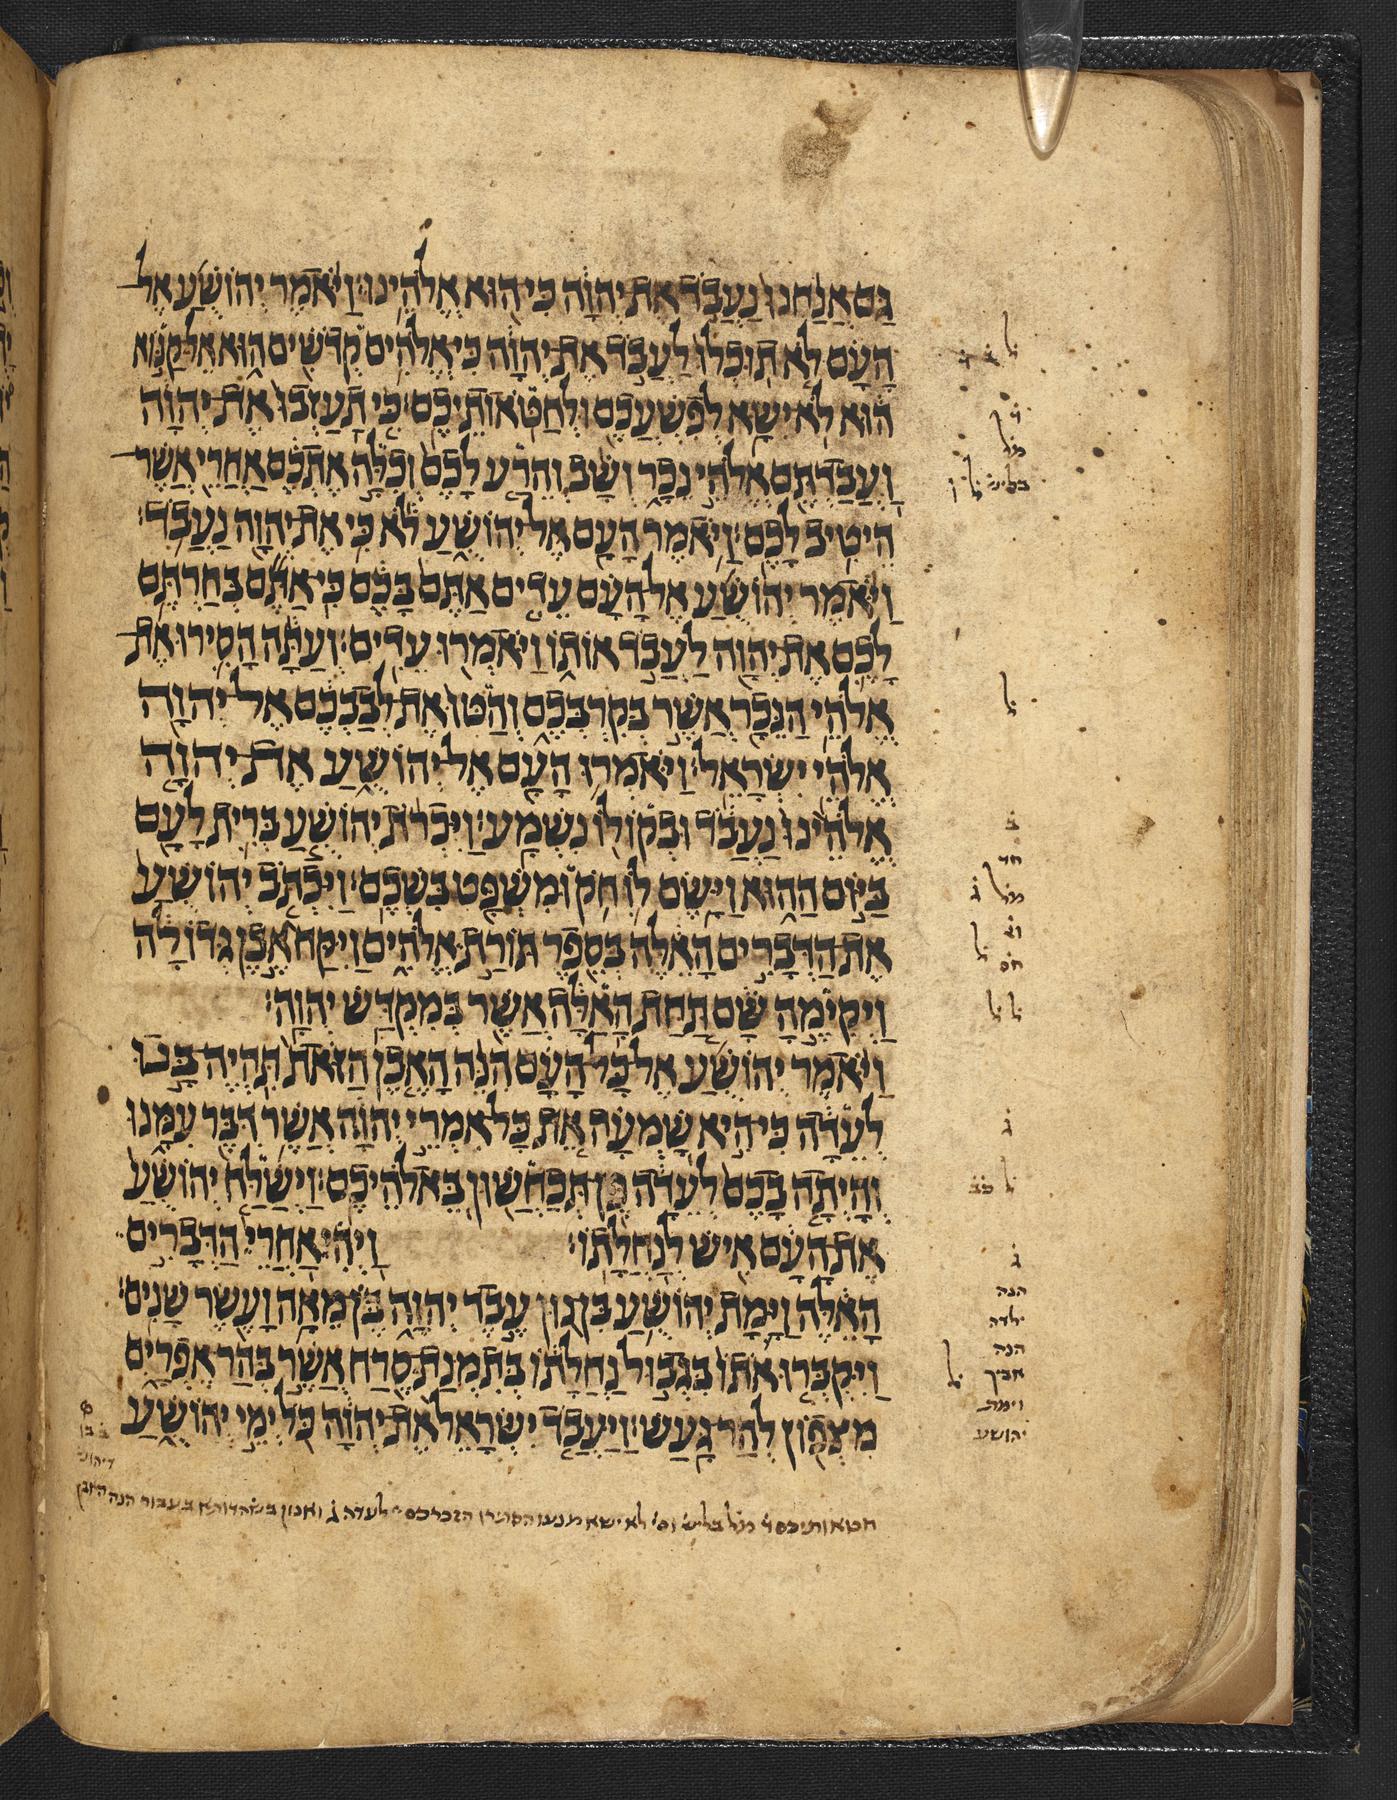 גַּם אֲנַחְנוּ נַעֲבֹד אֶת יְהוָה כִּי הוּא אֱלֹהֵינוּ׃ וַיֹּאמֶר יְהוֹשֻׁעַ אֶל
הָעָם לֹא תוּכְלוּ לַעֲבֹד אֶת יְהוָה כִּי אֱלֹהִים קְדֹשִׁים הוּא אֵל קַנּוֹא
הוּא לֹא יִשָּׂא לְפִשְׁעֲכֶם וּלְחַטֹּאותֵיכֶם׃ כִּי תַעַזְבוּ אֶת יְהוָה
וַעֲבַדְתֶּם אֱלֹהֵי נֵכָר וְשָׁב וְהֵרַע לָכֶם וְכִלָּה אֶתְכֶם אַחֲרֵי אֲשֶׁר
הֵיטִיב לָכֶם׃ וַיֹּאמֶר הָעָם אֶל יְהוֹשֻׁעַ לֹא כִּי אֶת יְהוָה נַעֲבֹד׃
וַיֹּאמֶר יְהוֹשֻׁעַ אֶל הָעָם עֵדִים אַתֶּם בָּכֶם כִּי אַתֶּם בְּחַרְתֶּם
לָכֶם אֶת יְהוָה לַעֲבֹד אוֹתוֹ וַיֹּאמְרוּ עֵדִים׃ וְעַתָּה הָסִירוּ אֶת
אֱלֹהֵי הַנֵּכָר אֲשֶׁר בְּקִרְבְּכֶם וְהַטּוּ אֶת לְבַבְכֶם אֶל יְהוָה
אֱלֹהֵי יִשְׂרָאֵל׃ וַיֹּאמְרוּ הָעָם אֶל יְהוֹשֻׁעַ אֶת יְהוָה
אֱלֹהֵינוּ נַעֲבֹד וּבְקוֹלוֹ נִשְׁמָע׃ וַיִּכְרֹת יְהוֹשֻׁעַ בְּרִית לָעָם
בַּיּוֹם הַהוּא וַיָּשֶׂם לוֹ חֹק וּמִשְׁפָּט בִּשְׁכֶם׃ וַיִּכְתֹּב יְהוֹשֻׁעַ
אֶת הַדְּבָרִים הָאֵלֶּה בְּסֵפֶר תּוֹרַת אֱלֹהִים וַיִּקַּח אֶבֶן גְּדוֹלָה
וַיְקִימֶהָ שָּׁם תַּחַת הָאַלָּה אֲשֶׁר בְּמִקְדַּשׁ יְהוָה׃
וַיֹּאמֶר יְהוֹשֻׁעַ אֶל כָּל הָעָם הִנֵּה הָאֶבֶן הַזֹּאת תִּהְיֶה בָּנוּ
לְעֵדָה כִּי הִיא שָׁמְעָה אֵת כָּל אִמְרֵי יְהוָה אֲשֶׁר דִּבֶּר עִמָּנוּ
וְהָיְתָה בָכֶם לְעֵדָה פֶּן תְּכַחֲשׁוּן בֵּאלֹהֵיכֶם׃ וַיְשַׁלַּח יְהוֹשֻׁעַ
אֶת הָעָם אִישׁ לְנַחֲלָתוֹ׃ וַיְהִי אַחֲרֵי הַדְּבָרִים
הָאֵלֶּה וַיָּמָת יְהוֹשֻׁעַ בִּן נוּן עֶבֶד יְהוָה בֶּן מֵאָה וָעֶשֶׂר שָׁנִים׃
וַיִּקְבְּרוּ אֹתוֹ בִּגְבוּל נַחֲלָתוֹ בְּתִמְנַת סֶרַח אֲשֶׁר בְּהַר אֶפְרָיִם
מִצְּפוֹן לְהַר גָּעַשׁ׃ וַיַּעֲבֹד יִשְׂרָאֵל אֶת יְהוָה כֹּל יְמֵי יְהוֹשֻׁעַ
הנה
ילדה
הנה
אביך
וימת
יהושע